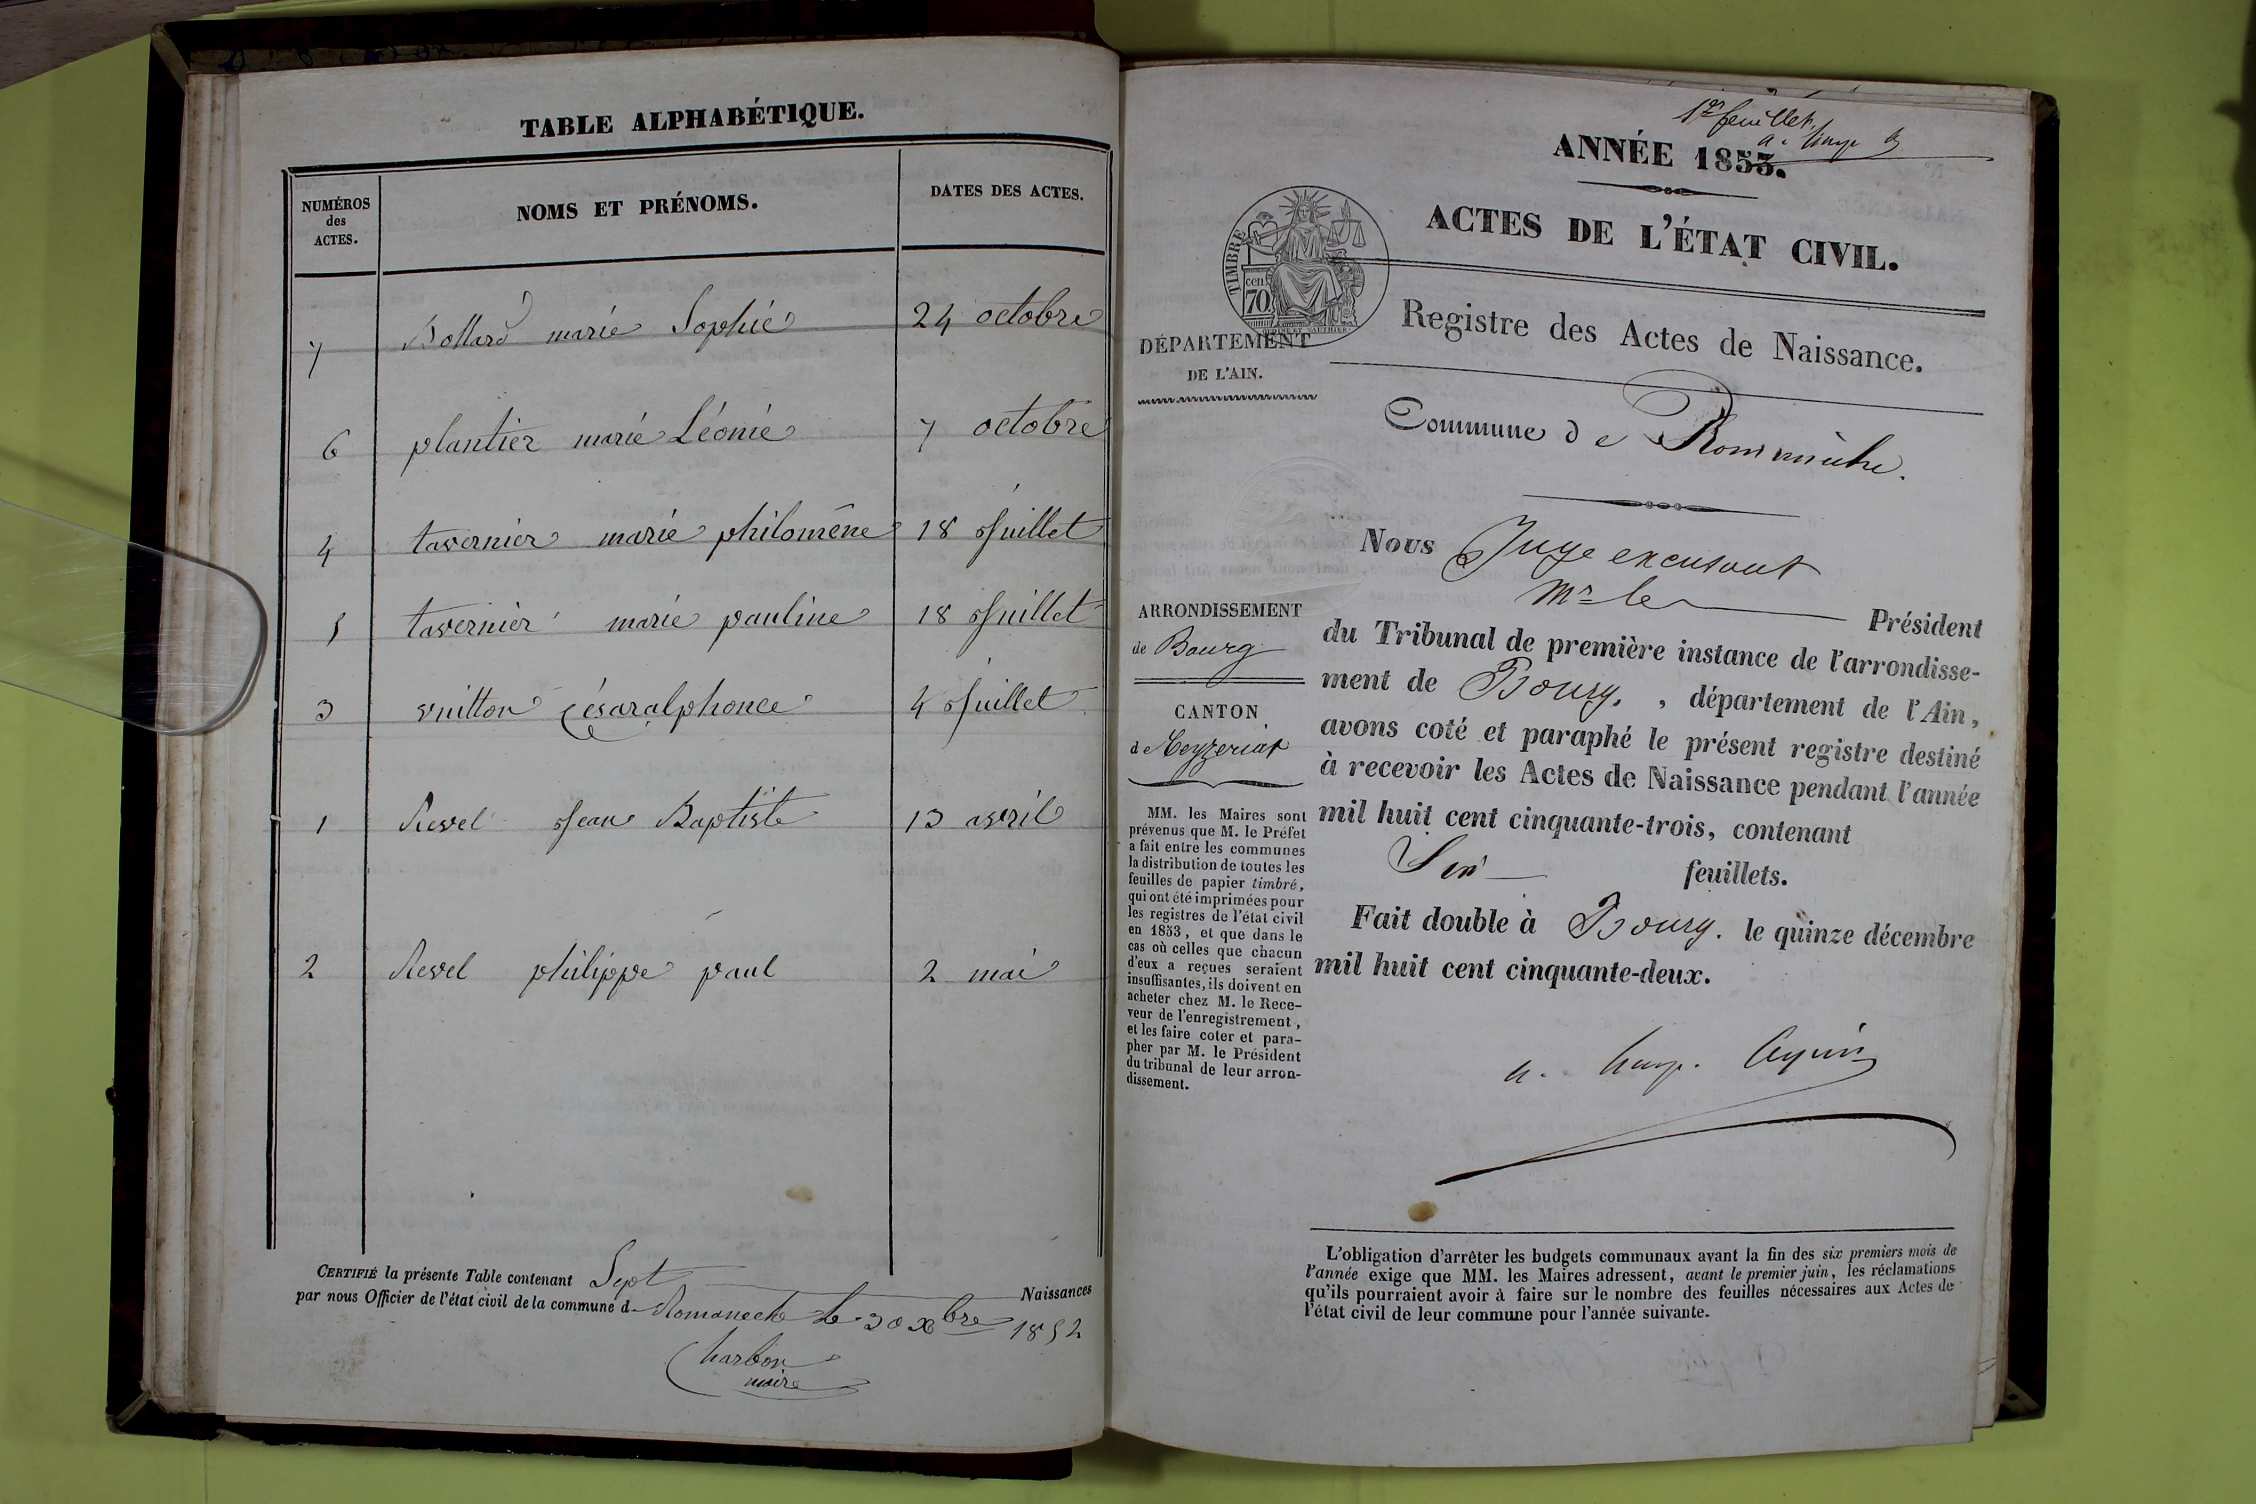 TABLE ALPHABÉTIQUE.
NUMÉROS
des
ACTES.
NOMS ET PRÉNOMS.
DATES DES ACTES.
7 Bollard marie Sophie 24 octobre
6 plantier marie Léonie 7 octobre
4 tavernier marie philomêne 18 Juillet
5 tavernier marie pauline 18 Juillet
3 vuitton Césaralphonce 4 Juillet
1 Revel Jean Baptiste 13 avril
2 Revel philippe paul 2 mai
CERTIFIÉ la présente Table contenant Sept Naissances
par nous Officier de l'état civil de la commune d Romaneche le 30 xbre 1852
Charbon
maire
1er feuillet
ANNÉE 1853.
ACTES DE L'ÉTAT CIVIL.
TIMBRE
cen
70
DÉPARTEMENT
DE L'AIN.
Registre des Actes de Naissance.
Commune de
Nous Juge excusant
Mr le Président
du Tribunal de première instance de l'arrondisse-
ment de Bourg, , département de l'Ain,
avons coté et paraphé le présent registre destiné
à recevoir les Actes de Naissance pendant l'année
mil huit cent cinquante-trois, contenant
Six feuillets.
Fait double à Bourg. le quinze décembre
mil huit cent cinquante-deux.
ARRONDISSEMENT
de Bourg
CANTON
de Ceyzeriat
MM. les Maires sont
prévenus que M. le Préfet
a fait entre les communes
la distribution de toutes les
feuilles de papier timbré,
qui ont été imprimées pour
les registres de l'état civil
en 1853, et que dans le
cas où celles que chacun
d'eux a reçues seraient
insuffisantes, ils doivent en
acheter chez M. le Rece-
veur de l'enregistrement,
et les faire coter et para-
pher par M. le Président
du tribunal de leur arron-
dissement.
L'obligation d'arrêter les budgets communaux avant la fin des six premiers mois de
l'année exige que MM. les Maires adressent, avant le premier juin, les réclamations
qu'ils pourraient avoir à faire sur le nombre des feuilles nécessaires aux Actes de
l'état civil de leur commune pour l'année suivante.